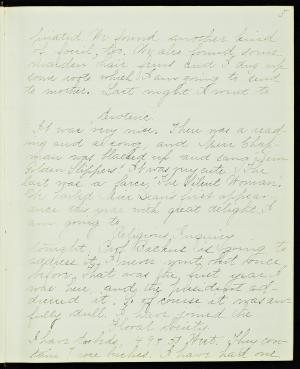 5
pirated We found another kind
of fossil, too. We also found some
maiden hair ferns and I dug up
some roots which I am going to send
to mother. Last night I went to
It was very nice. There was a read-
ing and a song, and Miss Chap-
man was blacked up and sang "Dem
Golden Slippers". It was very cute. The
last was a farce, "The Silent Woman".
We hailed Miss first appear-
ance this year with great delight. I
am going to
Religious Inquiry
tonight. Prof. is going to
address it, I never went but once
before, that was the first year I
was here, and the president ad-
dressed it. Of course it was aw-
fully dull. I have joined the
Floral Society.
I have two beds, 49 & 50 West. They con-
tain rose bushes. I have had one